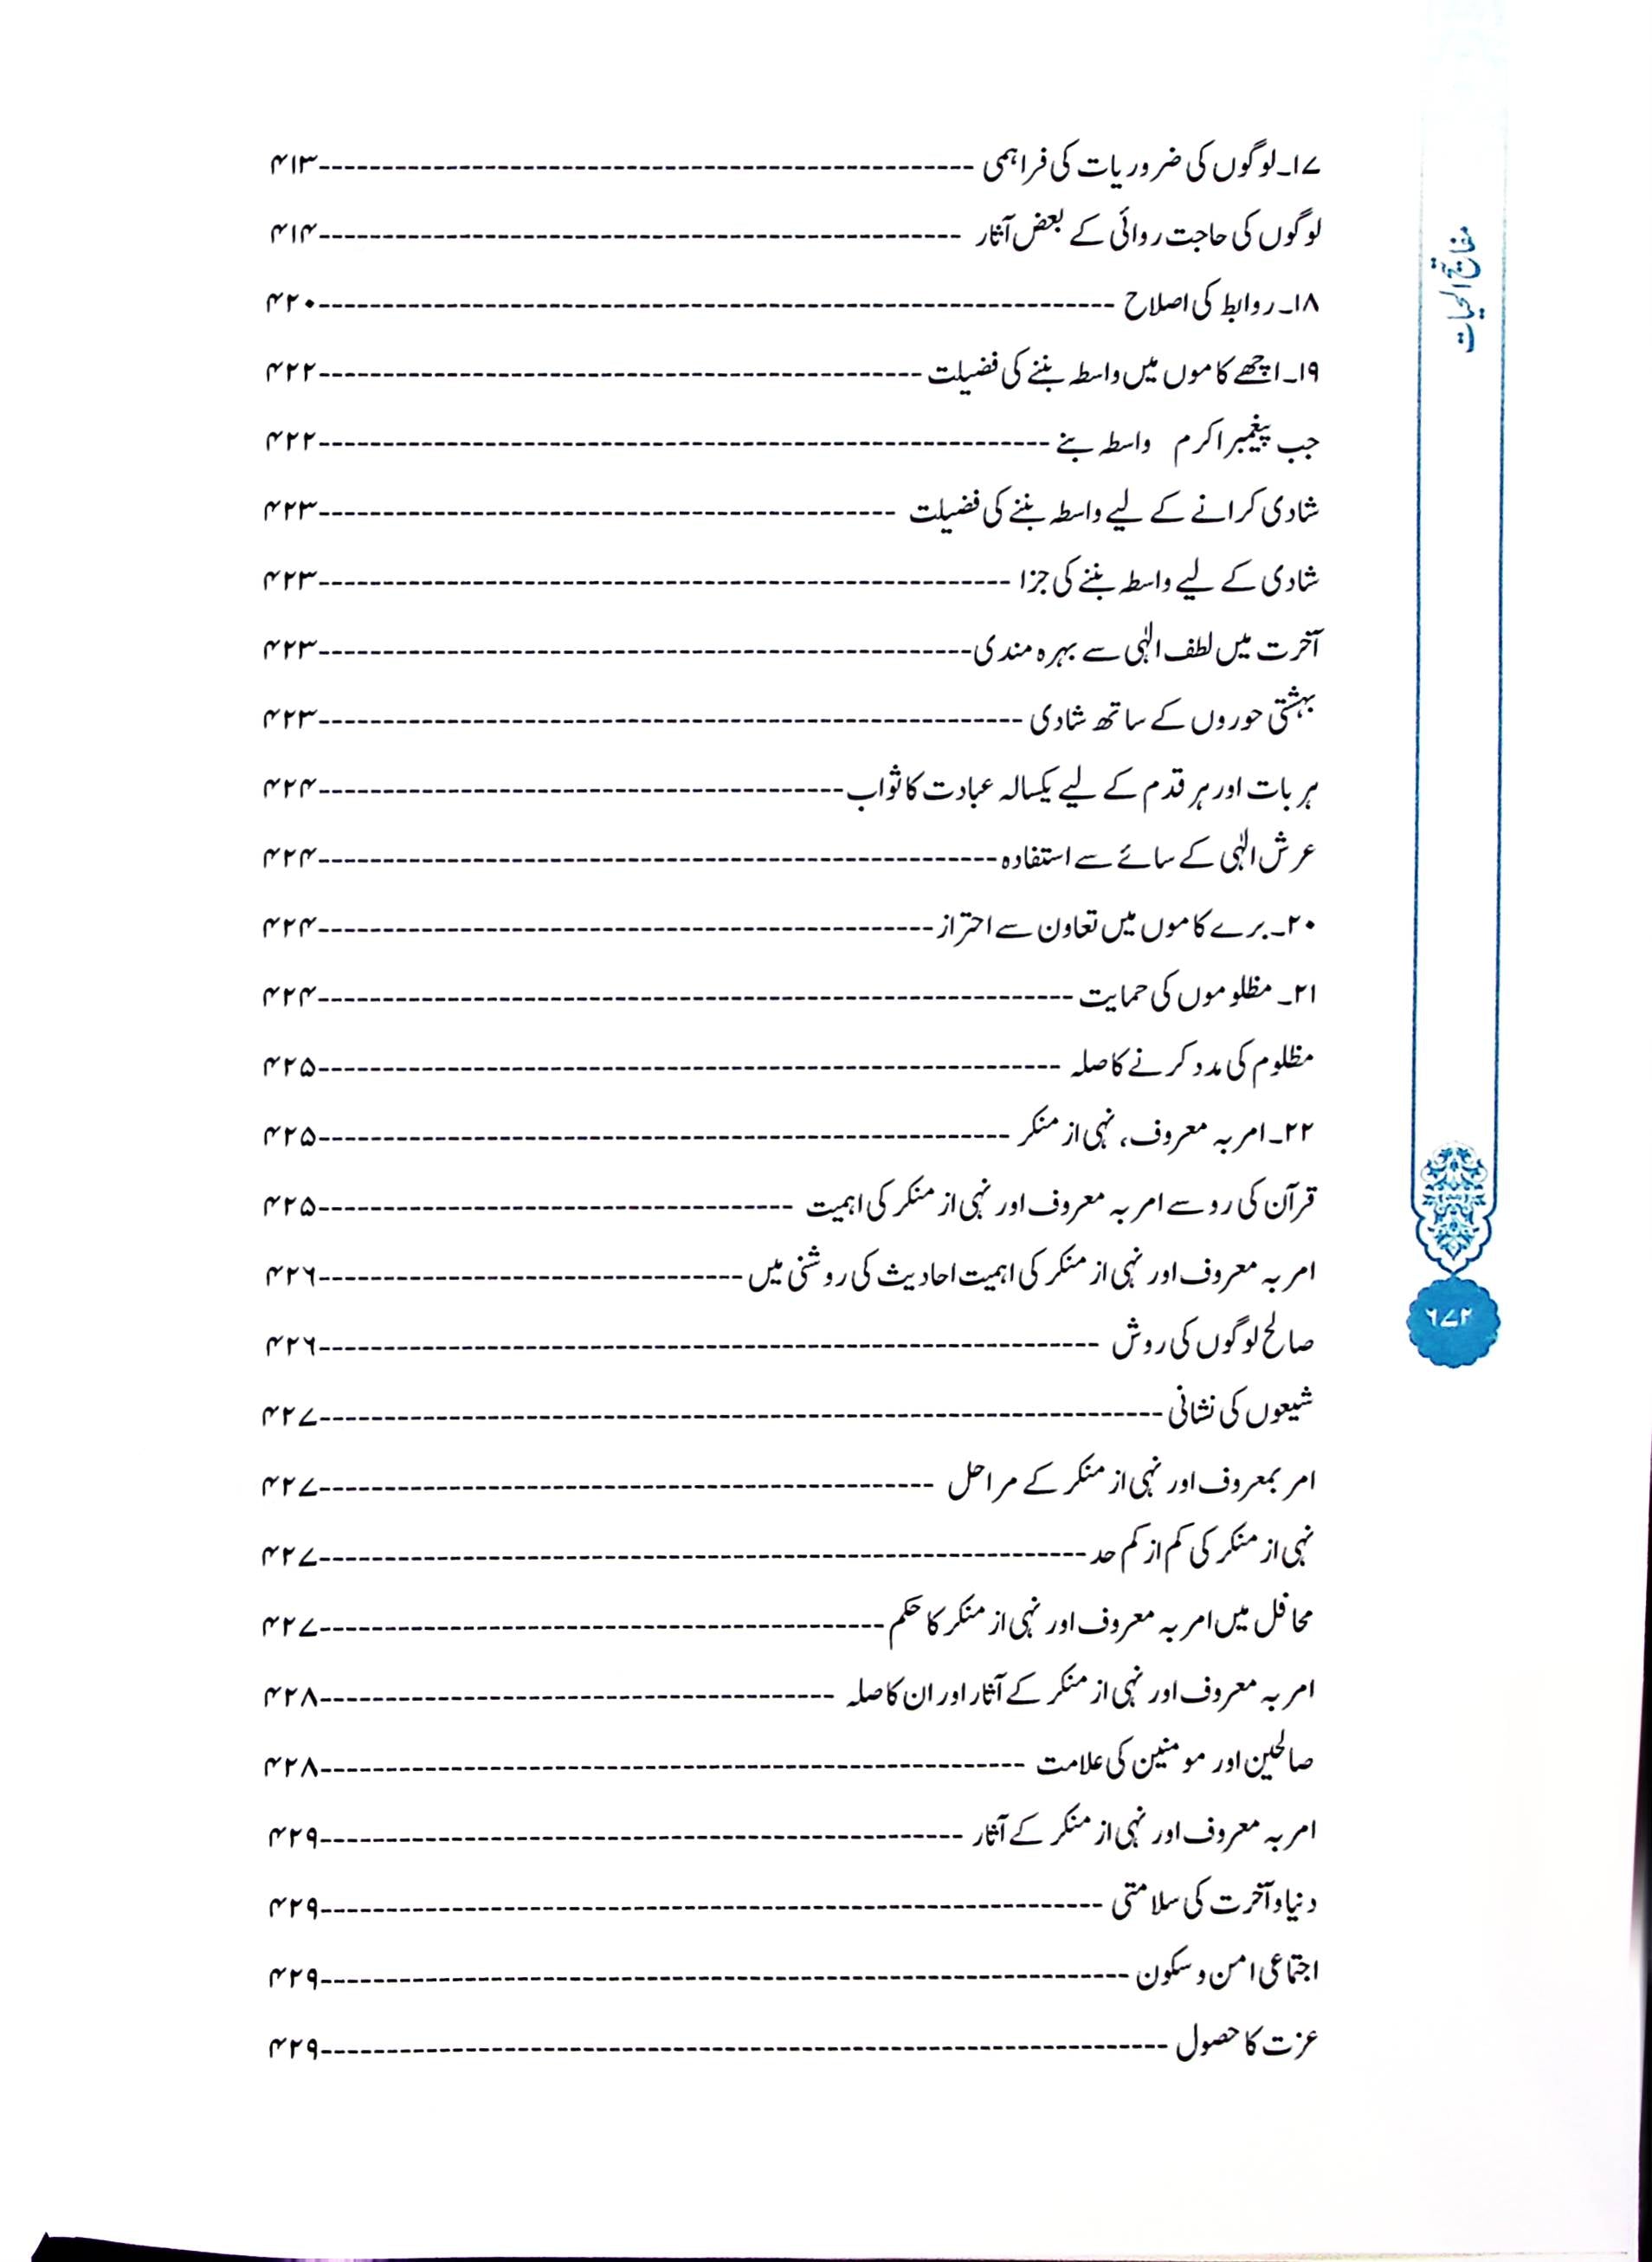 ۱۷۔لوگوں کی ضروریات کی فراہمی ---------- ۴۱۳
لوگوں کی حاجت روائی کے بعض آثار ---------- ۴۱۴
۱۸۔ روابط کی اصلاح ---------- ۴۲۰
۱۹۔اچھے کاموں میں واسطہ بننے کی فضیلت ---------- ۴۲۲
جب پیغمبر اکرم واسطہ بنے ---------- ۴۲۲
شادی کرانے کے لیے واسطہ بننے کی فضیلت ---------- ۴۲۳
شادی کے لیے واسطہ بننے کی جزا ---------- ۴۲۳
آخرت میں لطف الٰہی سے بہرہ مندی ---------- ۴۲۳
بہشتی حوروں کے ساتھ شادی ---------- ۴۲۳
ہر بات اور ہر قدم کے لیے یکسالہ عبادت کا ثواب ---------- ۴۲۴
عرش الٰہی کے سائے سے استفادہ ---------- ۴۲۴
۲۰۔ برے کاموں میں تعاون سے احتراز ---------- ۴۲۴
۲۱۔ مظلوموں کی حمایت ---------- ۴۲۴
مظلوم کی مدد کرنے کا صلہ ---------- ۴۲۵
۲۲۔ امر بہ معروف، نہی از منکر ---------- ۴۲۵
قرآن کی رو سے امر بہ معروف اور نہی از منکر کی اہمیت ---------- ۴۲۵
امر بہ معروف اور نہی از منکر کی اہمیت احادیث کی روشنی میں ---------- ۴۲۶
صالح لوگوں کی روش ---------- ۴۲۶
شیعوں کی نشانی ---------- ۴۲۷
امر بمعروف اور نہی از منکر کے مراحل ---------- ۴۲۷
نہی از منکر کی کم از کم حد ---------- ۴۲۷
محافل میں امر بہ معروف اور نہی از منکر کا حکم ---------- ۴۲۷
امر بہ معروف اور نہی از منکر کے آثار اور ان کا صلہ ---------- ۴۲۸
صالحین اور مومنین کی علامت ---------- ۴۲۸
امر بہ معروف اور نہی از منکر کے آثار ---------- ۴۲۹
دنیا و آخرت کی سلامتی ---------- ۴۲۹
اجتماعی امن و سکون ---------- ۴۲۹
عزت کا حصول ---------- ۴۲۹
مفاتیح الحیات
۶۷۲